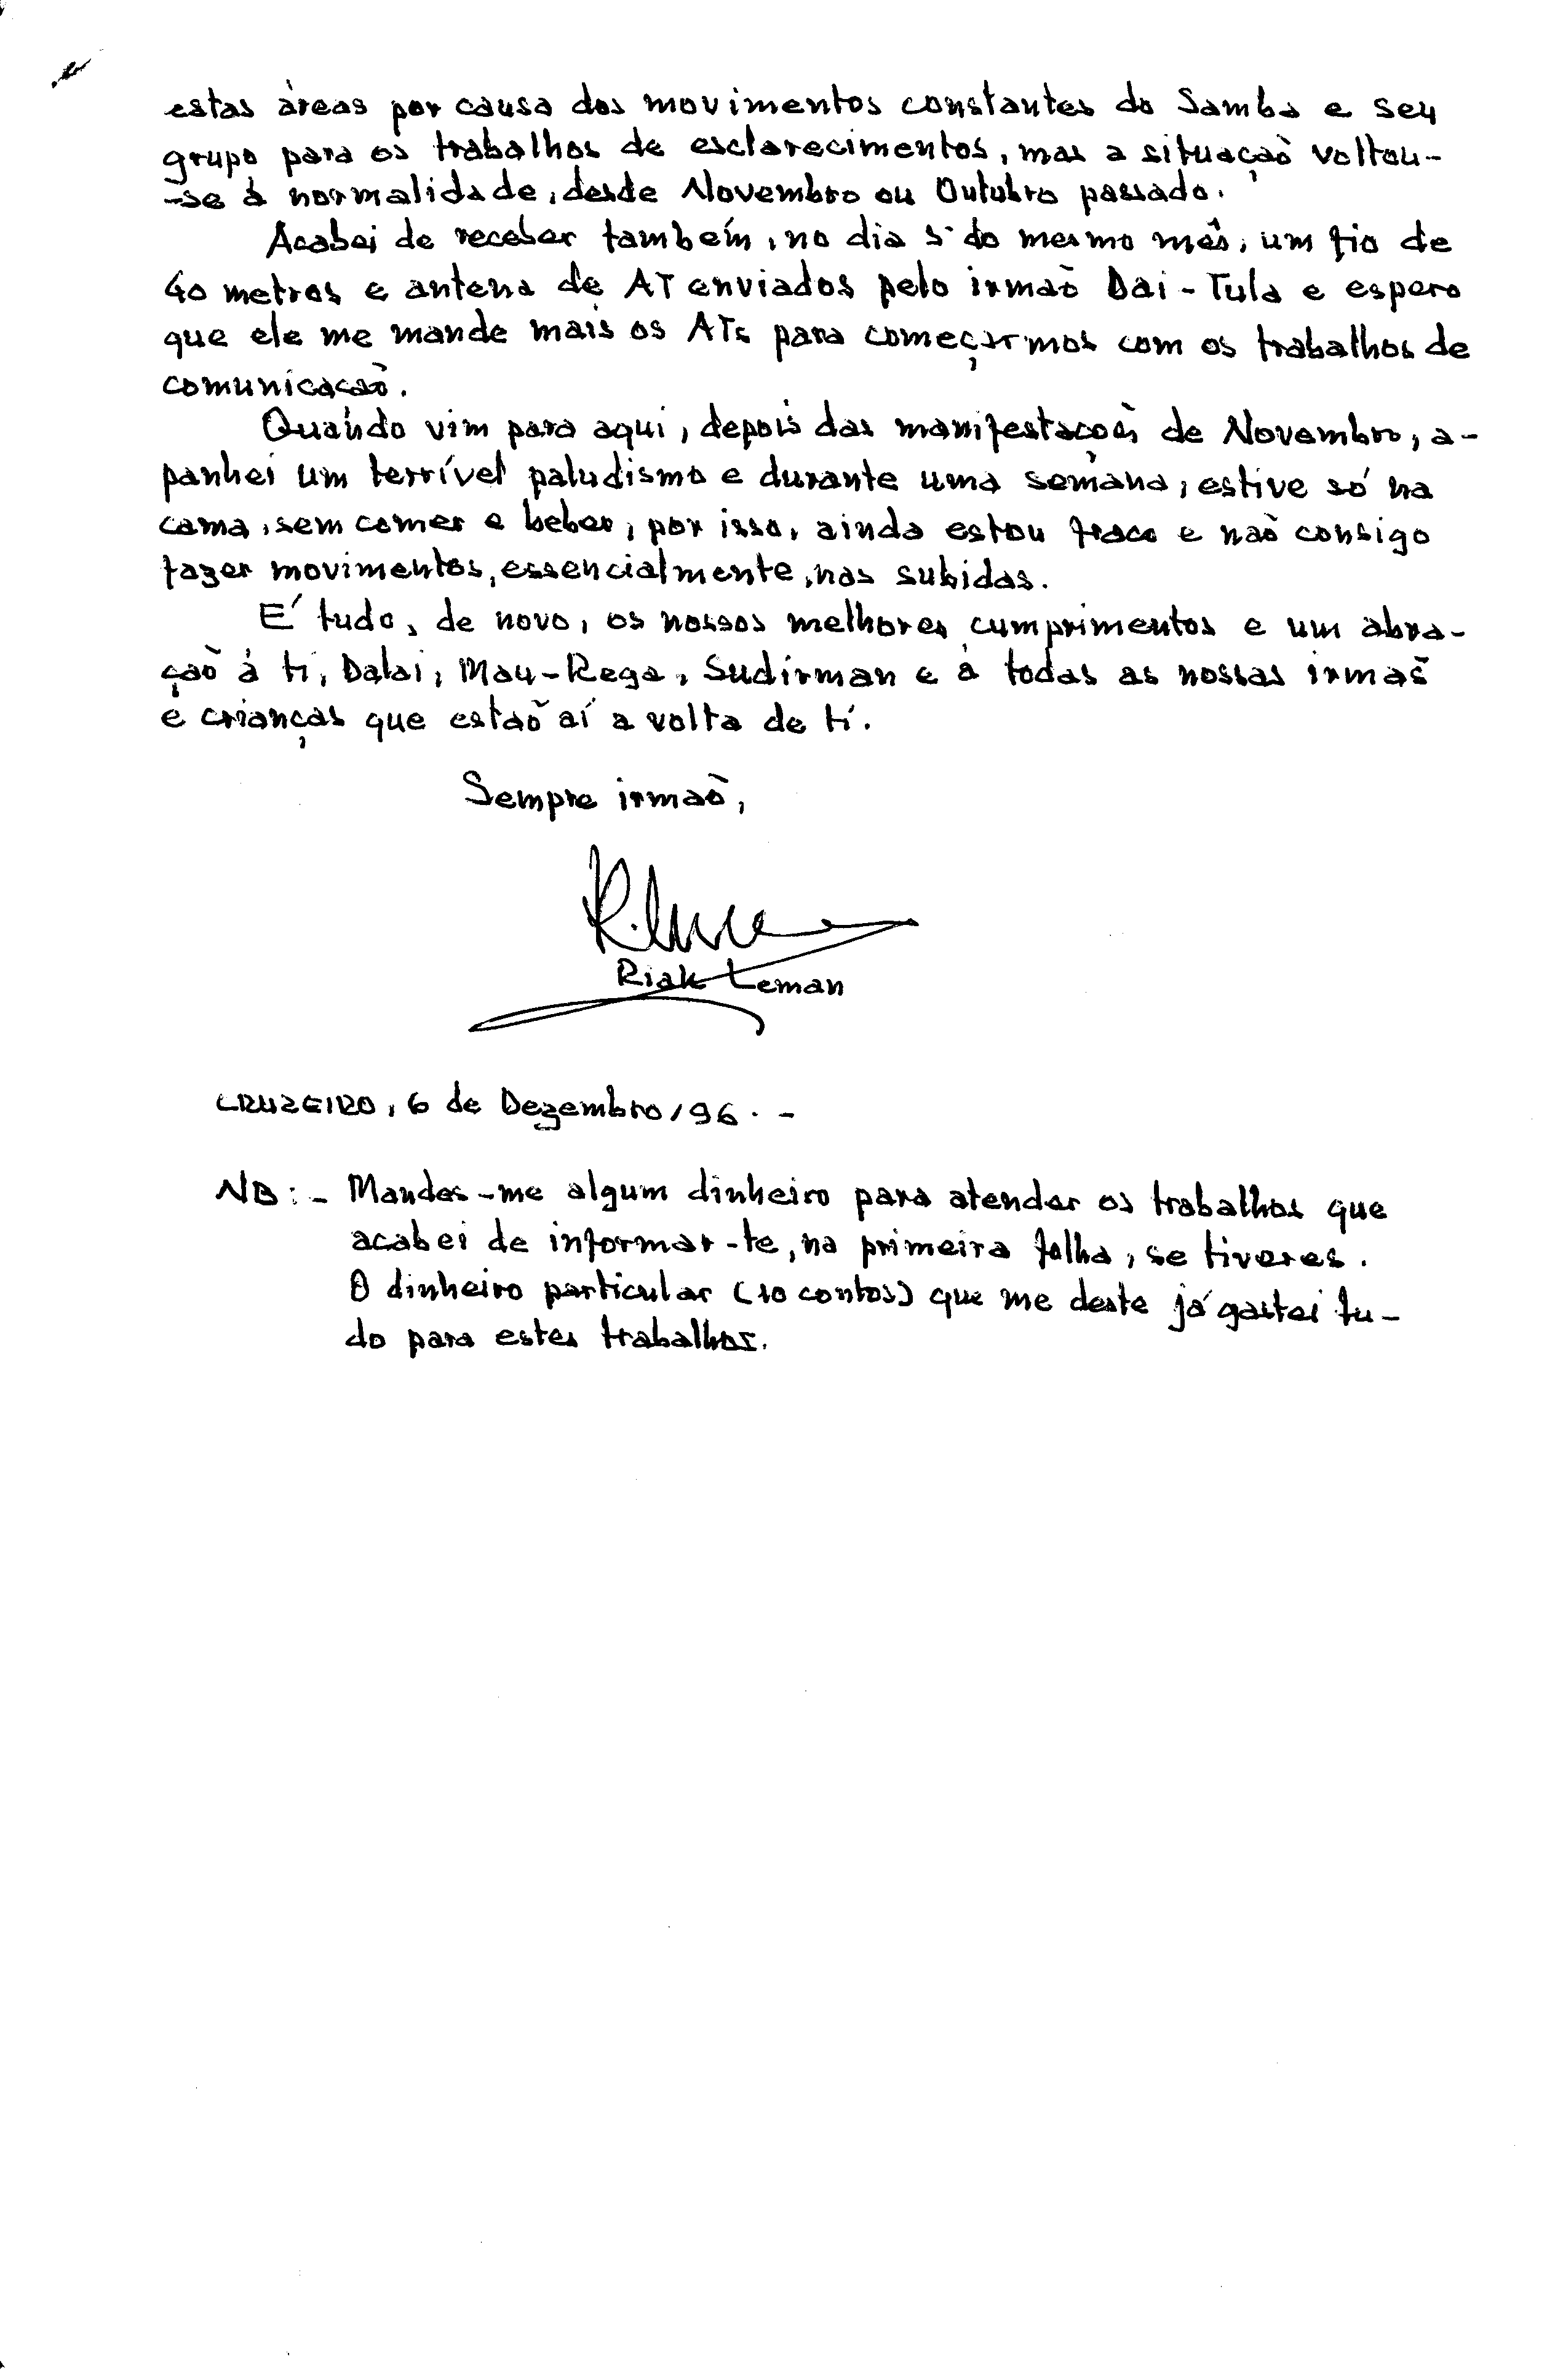 estas àreas por causa dos movimentos constantes do Samba e seu
grupo para os trabalhos de esclarecimentos, mas a situaçaõ voltou-
-se à normalidade, desde Novembro ou Outubro passado.
Acabei de receber também, no dia 5 do mesmo mês, um fio de
40 metros e antena de AT enviados pelo irmaõ Dai-Tula e espero
que ele me mande mais os ATs para começarmos com os trabalhos de
comunicaçaõ.
Quando vim para aqui, depois das manifestaçoẽs de Novembro, a-
panhei um terrível paludismo e durante uma semana, estive só na
cama, sem comer e beber, por isso, ainda estou fraco e naõ consigo
fazer movimentos, essencialmente, nas subidas.
É tudo, de novo, os nossos melhores cumprimentos e um abra-
çaõ à ti, Dalai, Mau-Rega, Sudirman e à todas as nossas irmãs
e crianças que estaõ aí a volta de tí.
Sempre irmaõ,
Riak Leman
CRUZEIRO, 6 de Dezembro/96. -
NB: - Mandes-me algum dinheiro para atender os trabalhos que
acabei de informar-te, na primeira folha, se tiveres.
O dinheiro particular (10 contos) que me deste já gastei tu-
do para estes trabalhos.